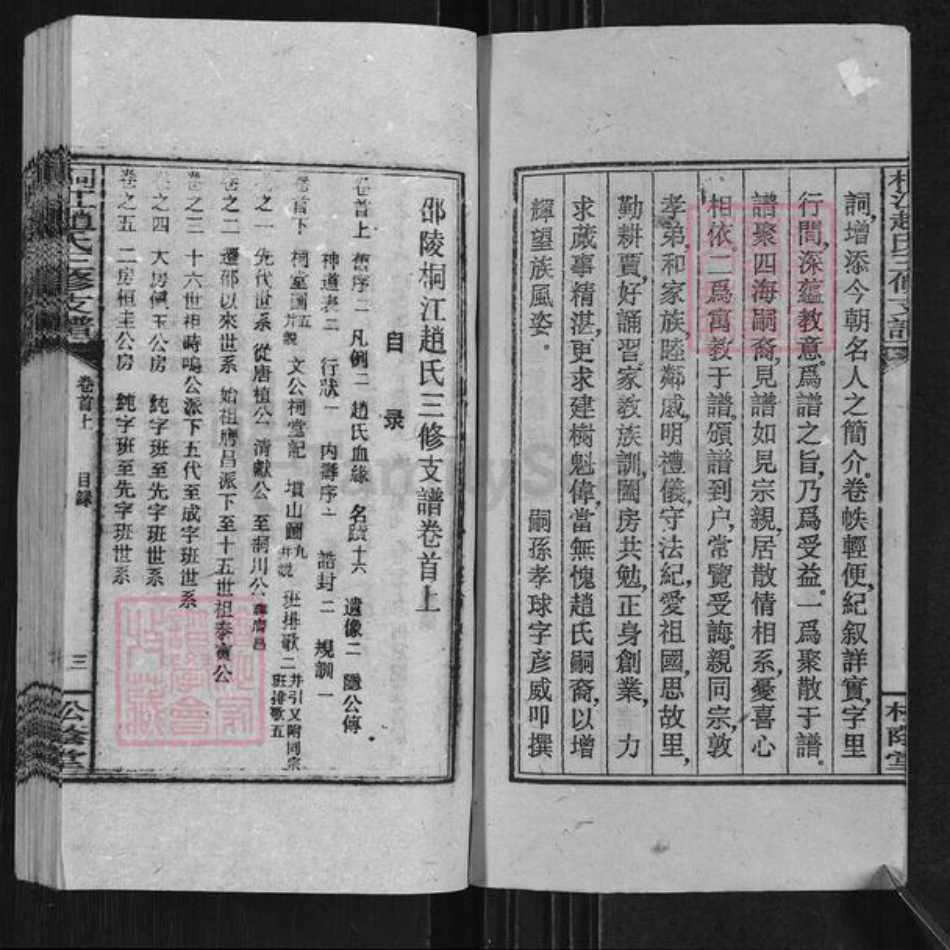 詞,增添今朝名人之簡介。卷帙輕便,紀叙詳實,字里
行間,深蘊教意。爲譜之旨,乃爲受益。一爲聚散于譜。
譜聚四海嗣裔,見譜如見宗親,居散情相系,憂喜心
相依。二爲寓教于譜。頒譜到户,常覽受誨。親同宗,敦
孝弟,和家族,睦鄰戚,明禮儀,守法紀,愛祖國,思故里,
勤耕賈,好誦習,家教族訓,闔房共勉,正身創業,力
求蕆事精湛,更求建樹魁偉,當無愧趙氏嗣裔,以增
輝望族風姿。
嗣孫孝球字彦威叩撰
邵陵桐江趙氏三修支譜卷首上
目录
卷首上 舊序二 凡例二 趙氏血緣 名蹟十六 遺像二 隱公傳
神道表二 行狀一 内壽序六 誥封二 規訓一
卷首下 祠堂圖五并説 文公祠堂記 墳山圖九并説 班排歌二并引又附同宗班排歌五
卷之一 先代世系 從唐植公 清獻公 至制川公
卷之二 遷邵以來世系 始祖膺昌派下至十五世祖泰寅公
卷之三 十六世祖時鳴公派下五代至成字班世系
卷之四 大房佩玉公房 純字班至先字班世系
卷之五 二房桓圭公房 純字班至先字班世系
桐江趙氏三修支譜
卷首上 目録
三